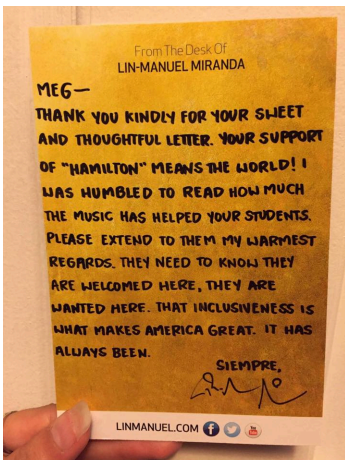 From The Desk Of
LIN-MANUEL MIRANDA
MEG—
THANK YOU KINDLY FOR YOUR SWEET
AND THOUGHTFUL LETTER. YOUR SUPPORT
OF "HAMILTON" MEANS THE WORLD! I
WAS HUMBLED TO READ HOW MUCH
THE MUSIC HAS HELPED YOUR STUDENTS.
PLEASE EXTEND TO THEM MY WARMEST
REGARDS. THEY NEED TO KNOW THEY
ARE WELCOMED HERE, THEY ARE
WANTED HERE. THAT INCLUSIVENESS IS
WHAT MAKES AMERICA GREAT. IT HAS
ALWAYS BEEN.
SIEMPRE,
LINMANUEL.COM